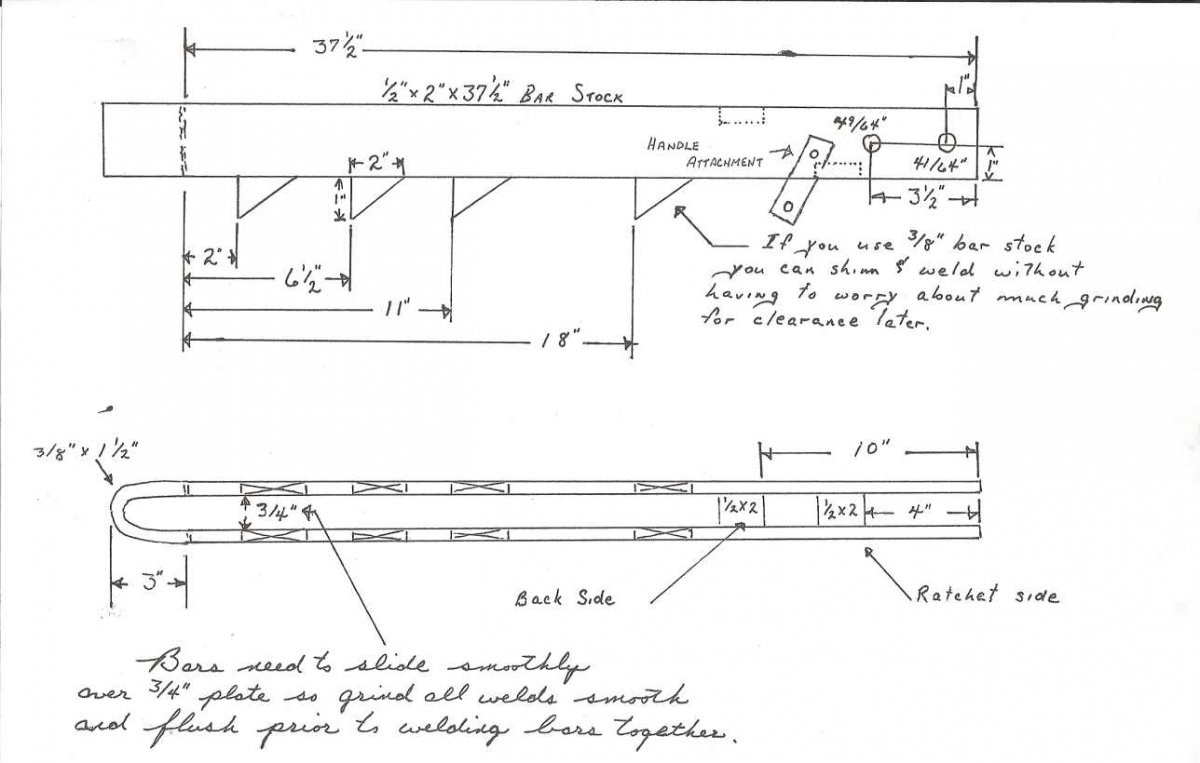 37 1/2"
1/2" x 2" x 37 1/2" BAR STOCK
1"
49/64"
HANDLE
ATTACHMENT
41/64"
1"
2"
1"
3 1/2"
2"
6 1/2"
11"
18"
If you use 3/8" bar stock
you can shim & weld without
having to worry about much grinding
for clearance later.
3/8" x 1 1/2"
10"
3/4"
1/2 x 2
1/2 x 2
4"
3"
Back Side
Ratchet side
Bars need to slide smoothly
over 3/4" plate so grind all welds smooth
and flush prior to welding bars together.